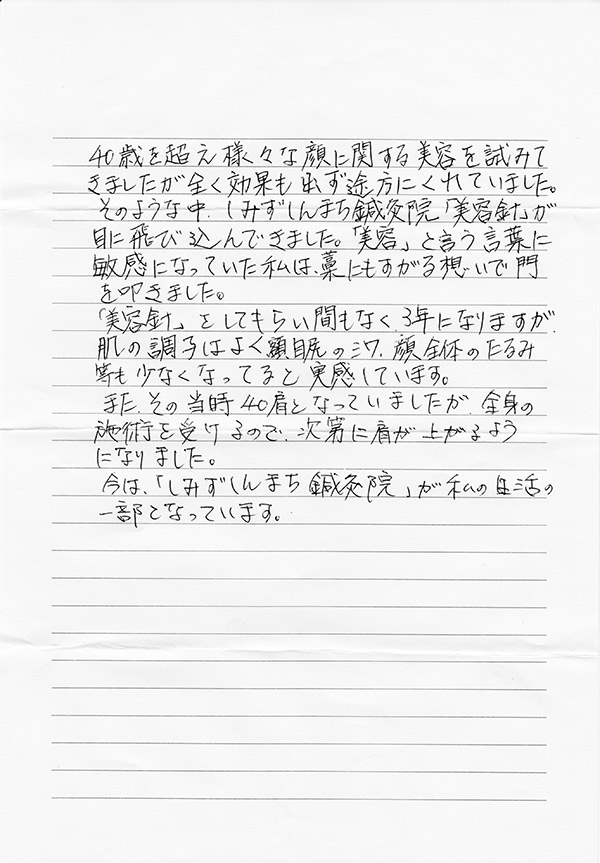 40歳を超え様々な顔に関する美容を試みて
きましたが全く効果も出ず途方にくれていました。
そのような中、しみずしんまち鍼灸院「美容針」が
目に飛び込んできました。「美容」と言う言葉に
敏感になっていた私は、藁にもすがる想いで門
を叩きました。
「美容針」をしてもらい間もなく、3年になりますが、
肌の調子はよく額目尻のシワ、顔全体のたるみ
等も少なくなってると実感しています。
また、その当時40肩となっていましたが、全身の
施術を受けるので、次第に肩が上がるよう
になりました。
今は、「しみずしんまち鍼灸院」が私の生活の
一部となっています。